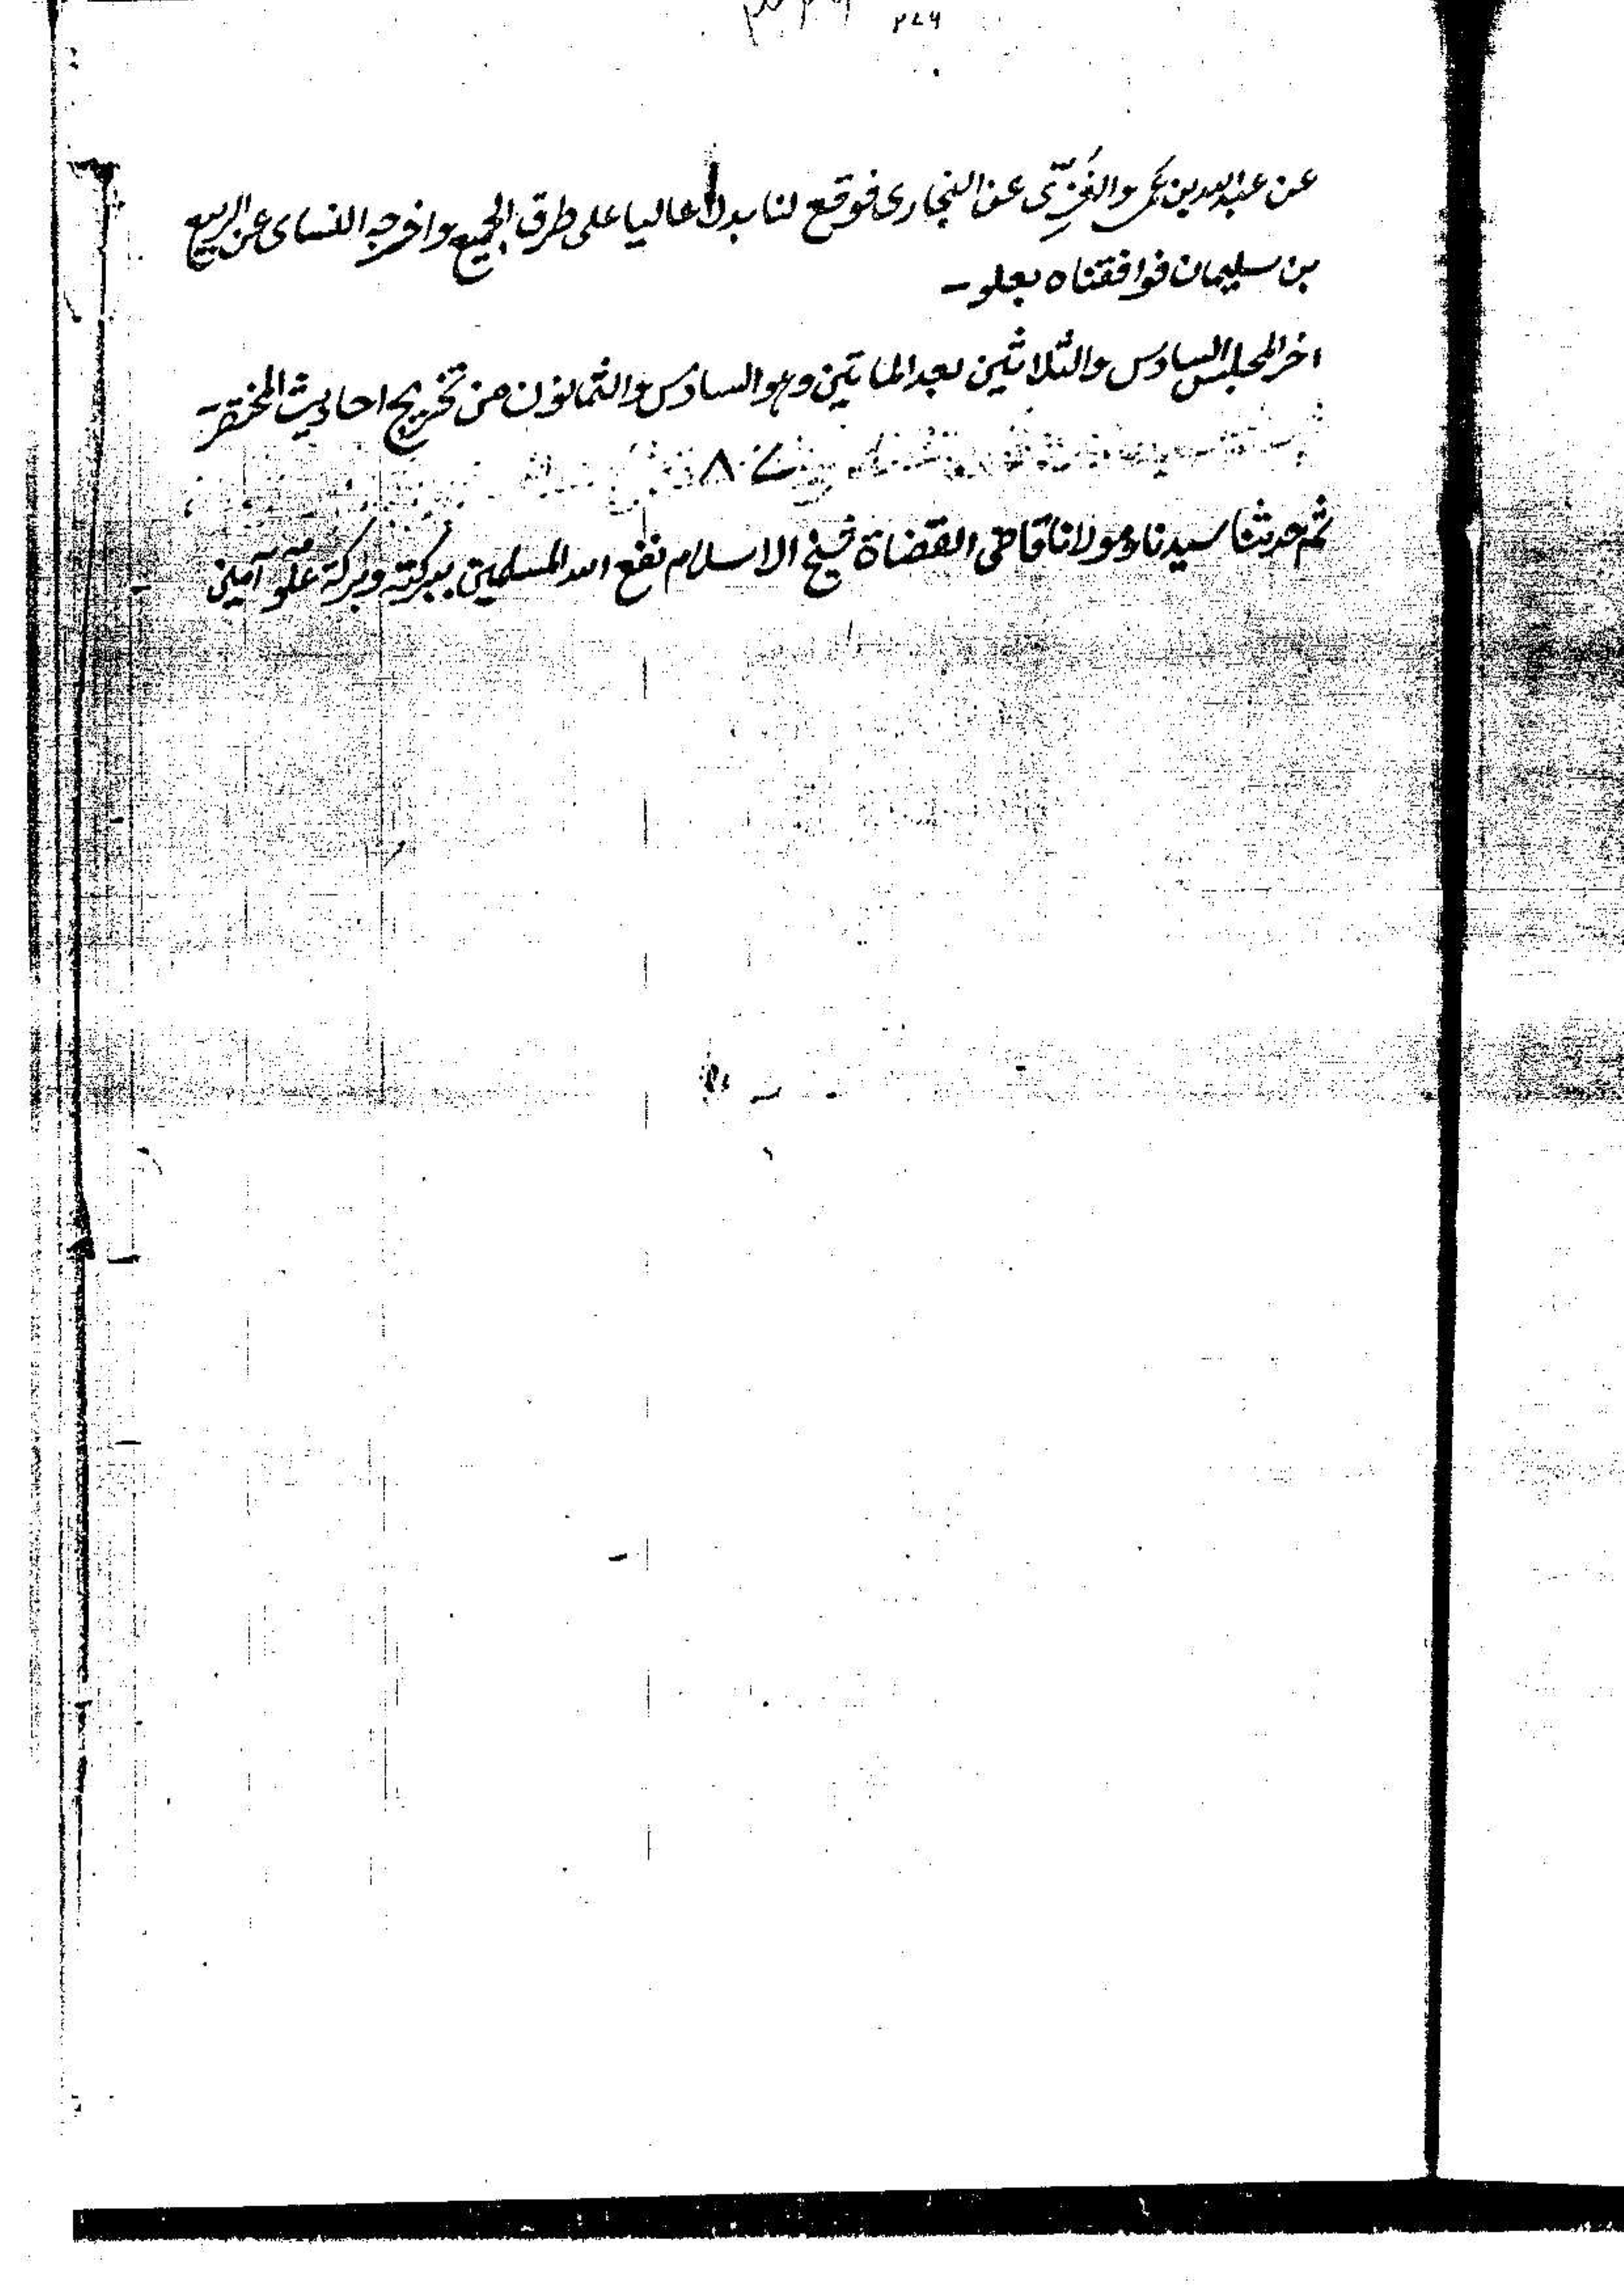 ٣٤٩
عن عبد الله بن عمر والغزي عن البخاري فوقع لنا بدلا عاليا على طرق الجميع واخرجه النساى عن الربيع
بن سليمان فوافقناه بعلو -
اخر المجلس السادس والثلاثين بعد الماتين وهو السادس والثمانون من تخريج احاديث المختصر -
ثم حدثنا سيدنا ومولانا قاضى القضاة شيخ الاسلام نفع الله المسلمين ببركته وبركة علومه آمين